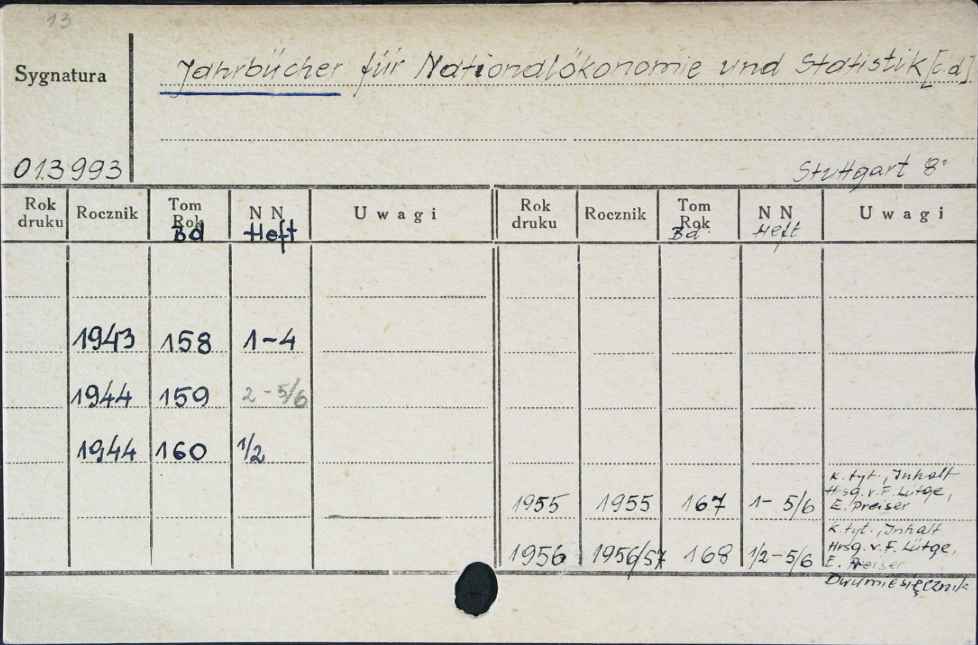 13
Sygnatura
Jahrbücher für Nationalökonomie und Statistik [c d]
013993
Stuttgart 8°
Rok druku Rocznik Tom Rok Bd N N Heft Uwagi Rok druku Rocznik Tom Rok Bd. N N Heft Uwagi
1943 158 1-4
1944 159 2-5/6
1944 160 1/2
1955 1955 167 1-5/6 K. tyt., Inhalt
Hrsg. v. F. Lütge,
E. Preiser
1956 1956/57 168 1/2-5/6 K. tyt., Inhalt
Hrsg. v. F. Lütge,
E. Preiser
Dwumiesięcznik